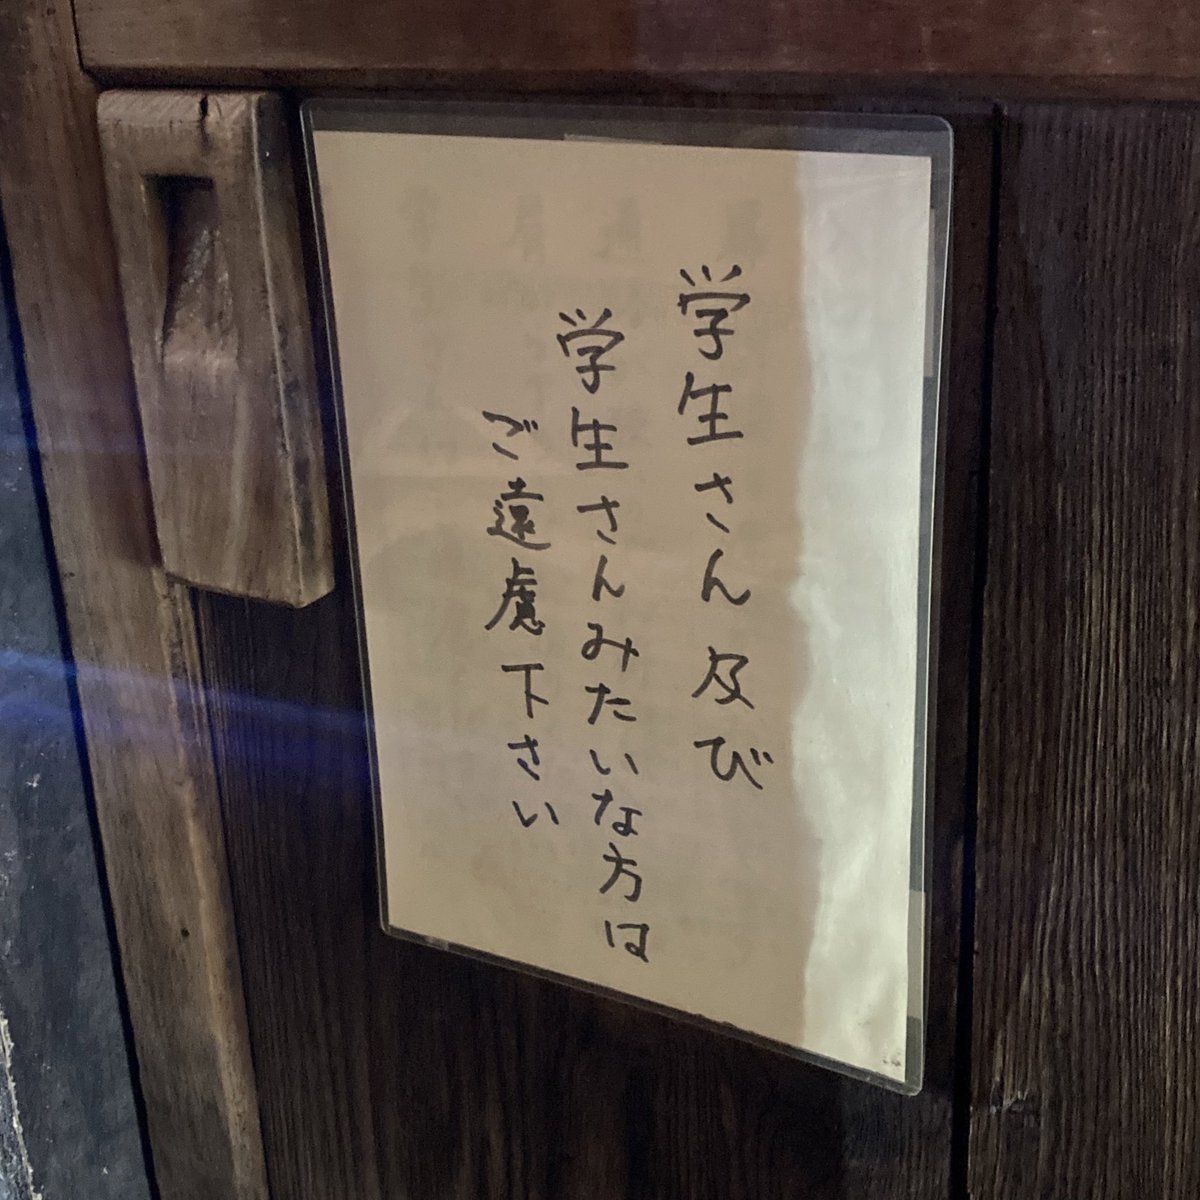 学生さん及び
学生さんみたいな方は
ご遠慮下さい